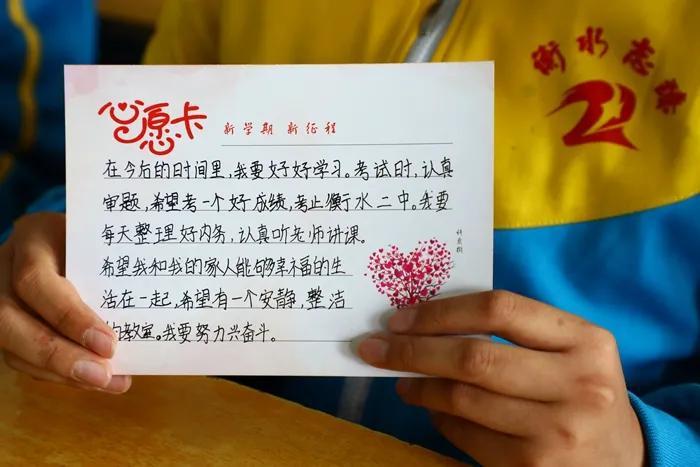 衡水志臻
心愿卡
新学期 新征程
在今后的时间里,我要好好学习。考试时,认真
审题,希望考一个好成绩,考上衡水二中。我要
每天整理好内务,认真听老师讲课。
希望我和我的家人能够幸福的生
活在一起,希望有一个安静,整洁
的教室。我要努力兴奋斗。